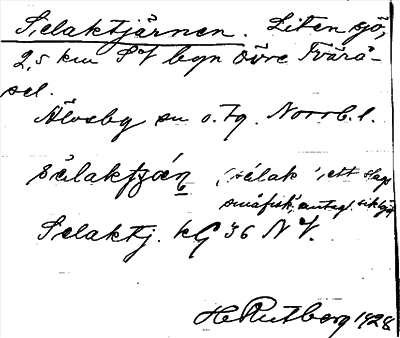 Selaktjärnen. Liten sjö,
2,5 km SV byn Övre Tvärå-
sel.
Älvsby sn o. tg. Norrb. l.
sälaktjän ('sälak', ett slags
småfisk, antagl. siklöja
Selaktj. kG 36 NV.
H Rutberg 1928